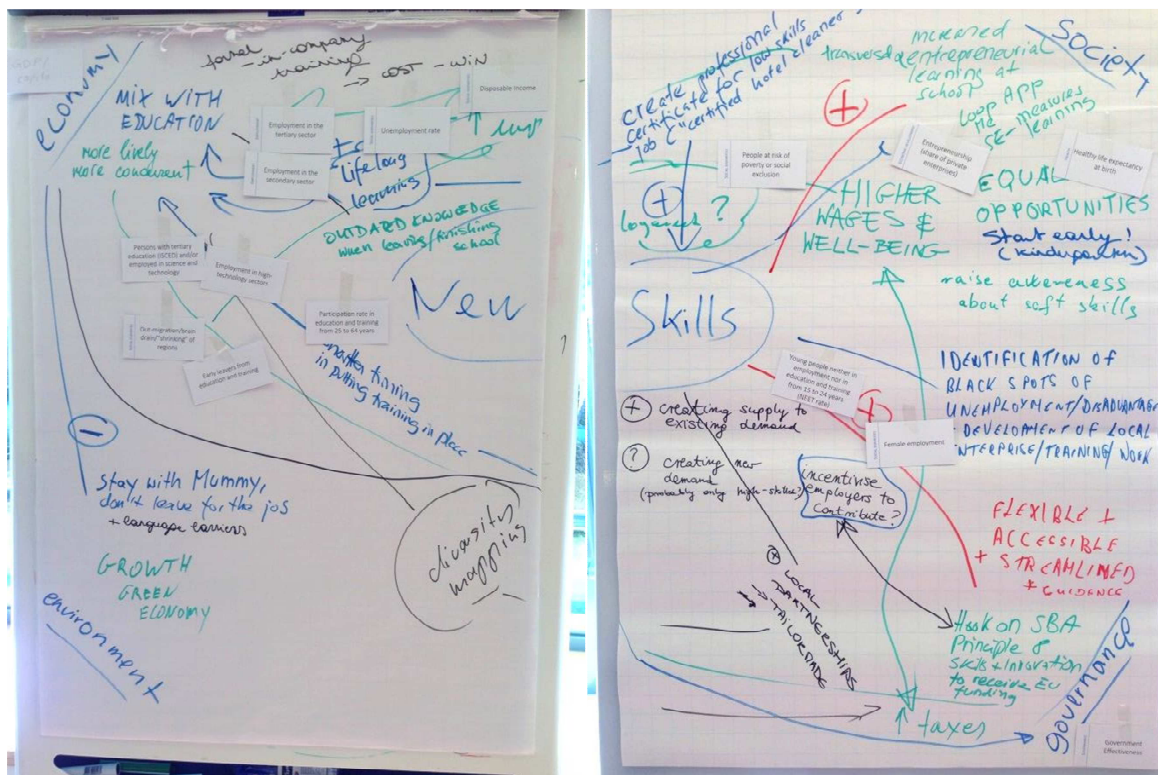 economy
formal
in-company
training
→ COST - WIN
MIX WITH
EDUCATION
more lively
more conducent
Disposable Income
Employment in the
tertiary sector
Unemployment rate
Employment in the
secondary sector
Life long
learning
OUTDATED KNOWLEDGE
when leaving/finishing
school
Persons with tertiary
education (ISCED) and/or
employed in science and
technology
Employment in high-
technology sectors
New
Participation rate in
education and training
from 25 to 64 years
Out-migration/brain
drain/"shrinking" of
regions
Early leavers from
education and training
training
in putting training in place
-
stay with Mummy,
don't leave for the job
+ language barriers
GROWTH
GREEN
ECONOMY
environment
diversity
mapping
create professional
certificate for low skills
job ("certified hotel cleaner
increased
transversal entrepreneurial
learning at
school
society
+
Loop App
measures
learning
People at risk of
poverty or social
exclusion
Entrepreneurship
(share of private
enterprises)
Healthy life expectancy
at birth
+
?
HIGHER
WAGES &
WELL-BEING
EQUAL
OPPORTUNITIES
Start early!
(kindergarten)
raise awareness
about soft skills
Skills
Young people neither in
employment nor in
education and training
from 15 to 24 years
(NEET rate)
+
IDENTIFICATION OF
BLACK SPOTS OF
UNEMPLOYMENT/DISADVANTAGE
DEVELOPMENT OF LOCAL
ENTERPRISE/TRAINING/WORK
Female employment
+ creating supply to
existing demand
? creating new
demand
(probably only high-skilled?)
incentivise
employers to
contribute?
FLEXIBLE +
ACCESSIBLE
+ STREAMLINED
+ GUIDENCE
LOCAL
PARTNERSHIPS
→ TAILORMADE
Hook on SBA
Principle 8
skills + innovation
to receive EU
funding
↑ taxes
governance
Government
Effectiveness